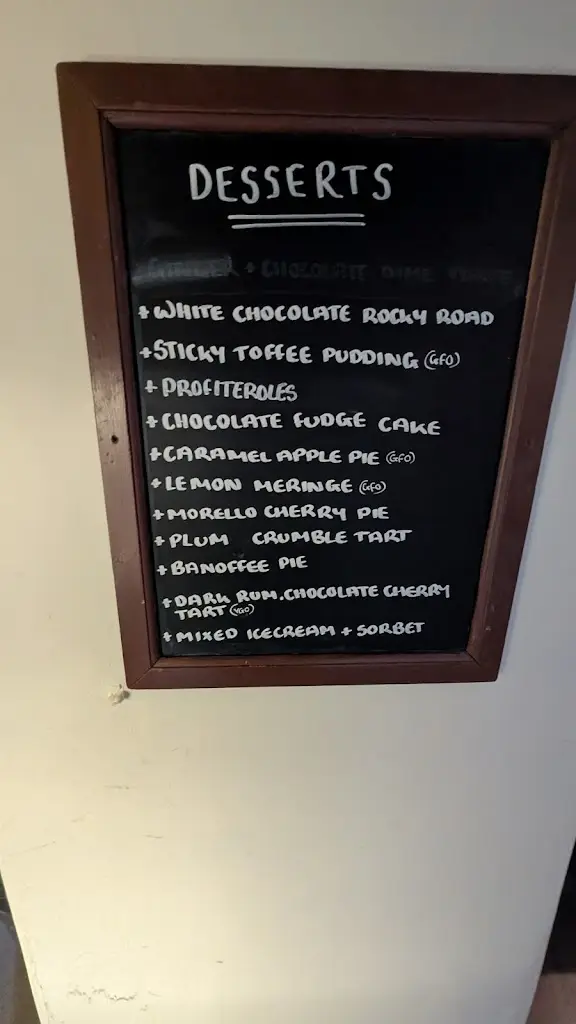 DESSERTS
+ WHITE CHOCOLATE ROCKY ROAD
+ STICKY TOFFEE PUDDING (GFO)
+ PROFITEROLES
+ CHOCOLATE FUDGE CAKE
+ CARAMEL APPLE PIE (GFO)
+ LEMON MERINGE (GFO)
+ MORELLO CHERRY PIE
+ PLUM CRUMBLE TART
+ BANOFFEE PIE
+ DARK RUM, CHOCOLATE CHERRY
TART (VGO)
+ MIXED ICECREAM + SORBET